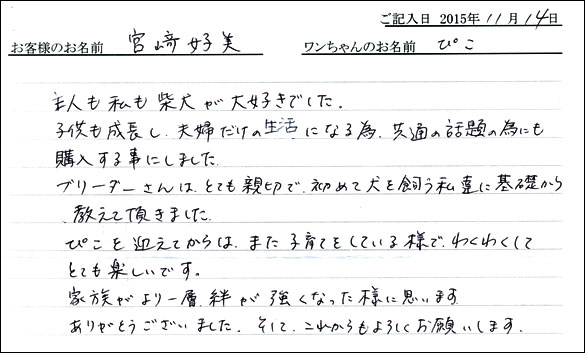 ご記入日 2015年 11月 14日
お客様のお名前 宮﨑好美 ワンちゃんのお名前 ぴこ
主人も私も柴犬が大好きでした。
子供も成長し、夫婦だけの生活になる為、共通の話題の為にも
購入する事にしました。
ブリーダーさんは、とても親切で、初めて犬を飼う私達に基礎から
教えて頂きました。
ぴこを迎えてからは、また子育てをしている様で、わくわくして
とても楽しいです。
家族がより一層、絆が強くなった様に思います
ありがとうございました。そして、これからもよろしくお願いします。